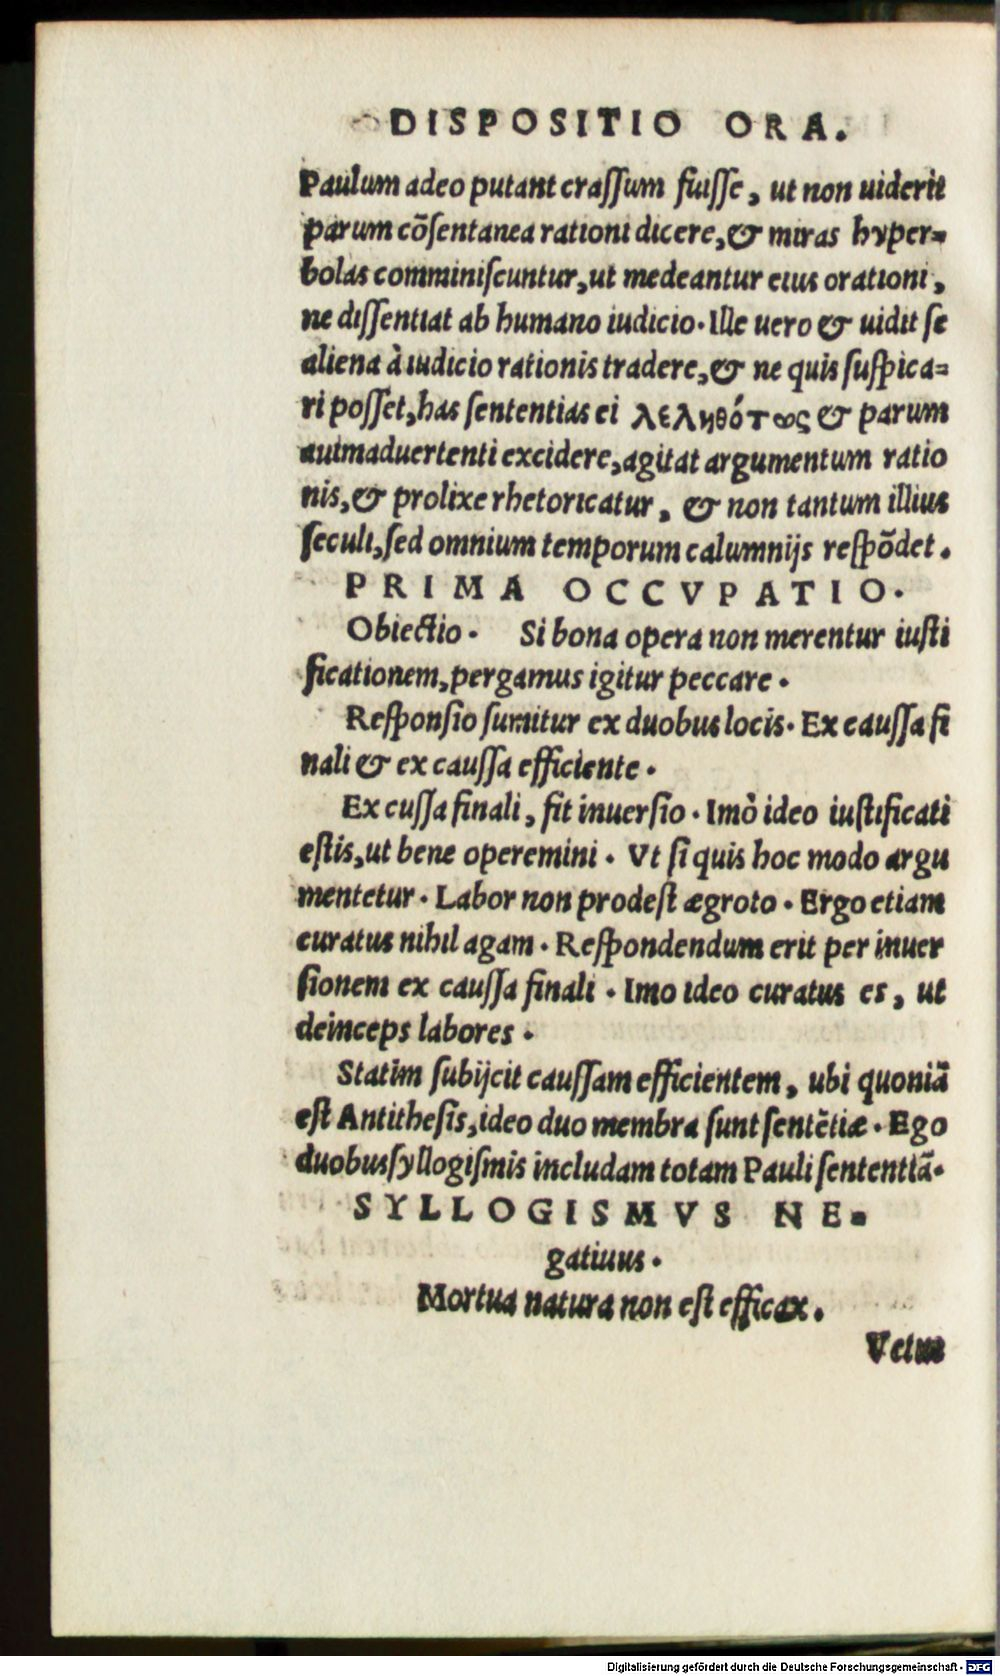 DISPOSITIO ORA.
Paulum adeo putant craſſum fuiſſe, ut non uiderit
parum cõſentanea rationi dicere,& miras hyper=
bolas comminiſcuntur,ut medeantur eius orationi,
ne diſſentiat ab humano iudicio. Ille uero & uidit ſe
aliena à iudicio rationis tradere,& ne quis ſuſpica=
ri poſſet,has ſententias ei λεληθότως & parum
animaduertenti excidere,agitat argumentum ratio
nis,& prolixe rhetoricatur, & non tantum illius
ſeculi,ſed omnium temporum calumnijs reſpõdet.
PRIMA OCCVPATIO.
Obiectio. Si bona opera non merentur iuſti
ficationem,pergamus igitur peccare.
Reſponſio ſumitur ex duobus locis. Ex cauſſa fi
nali & ex cauſſa efficiente.
Ex cuſſa finali, fit inuerſio. Imò ideo iuſtificati
eſtis,ut bene operemini. Vt ſi quis hoc modo argu
mentetur. Labor non prodeſt ægroto. Ergo etiam
curatus nihil agam. Reſpondendum erit per inuer
ſionem ex cauſſa finali. Imo ideo curatus es, ut
deinceps labores.
Statim ſubijcit cauſſam efficientem, ubi quoniã
eſt Antitheſis,ideo duo membra ſunt ſentẽtiæ. Ego
duobus ſyllogiſmis includam totam Pauli ſententiã.
SYLLOGISMVS NE=
gatiuus.
Mortua natura non eſt efficax.
Vetus
Digitalisierung gefördert durch die Deutsche Forschungsgemeinschaft - DFG